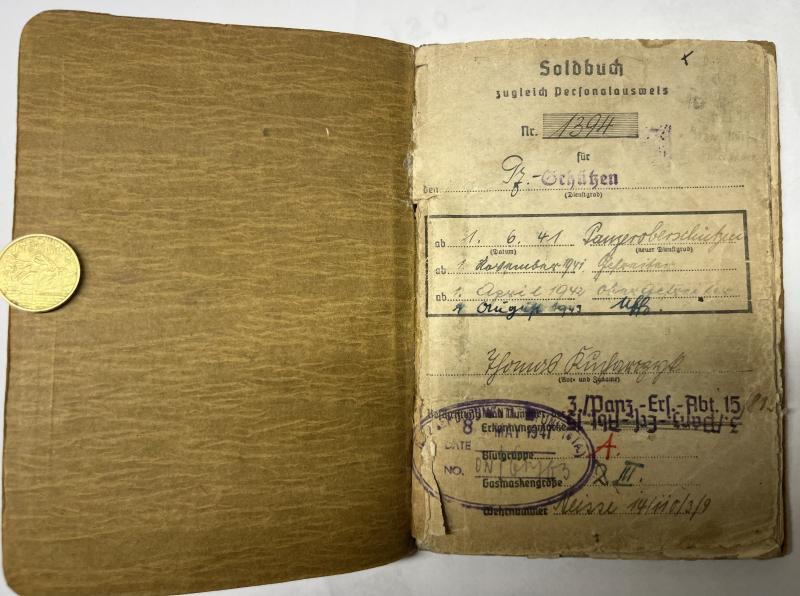 Soldbuch
zugleich Personalausweis
Nr. 1394
für
den Pz.-Schützen
(Dienstgrad)
ab 1. 6. 41 Panzeroberschützen
(Datum) (neuer Dienstgrad)
ab 1. November 1941 Gefreiter
ab 1. April 1942 Obergefreiter
1. August 1943 Uffz.
Thomas
(Vor- und Zuname)
3./Panz.-Ers.-Abt. 15
Beschriftung und Nummer der
3./Panz.-Ers.-Abt. 15
Erkennungsmarke
8 MAY 1947
DATE
Blutgruppe A.
NO.
Gasmaskengröße 2 III.
Wehrnummer Neisse 14/110/3/9